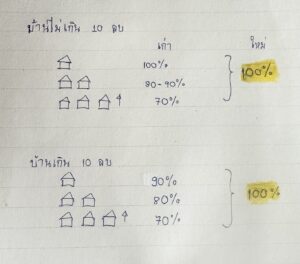 บ้านไม่เกิน 10 ลบ
เก่า ใหม่
100%
80-90% 100%
70%
บ้านเกิน 10 ลบ
90%
80% 100%
70%